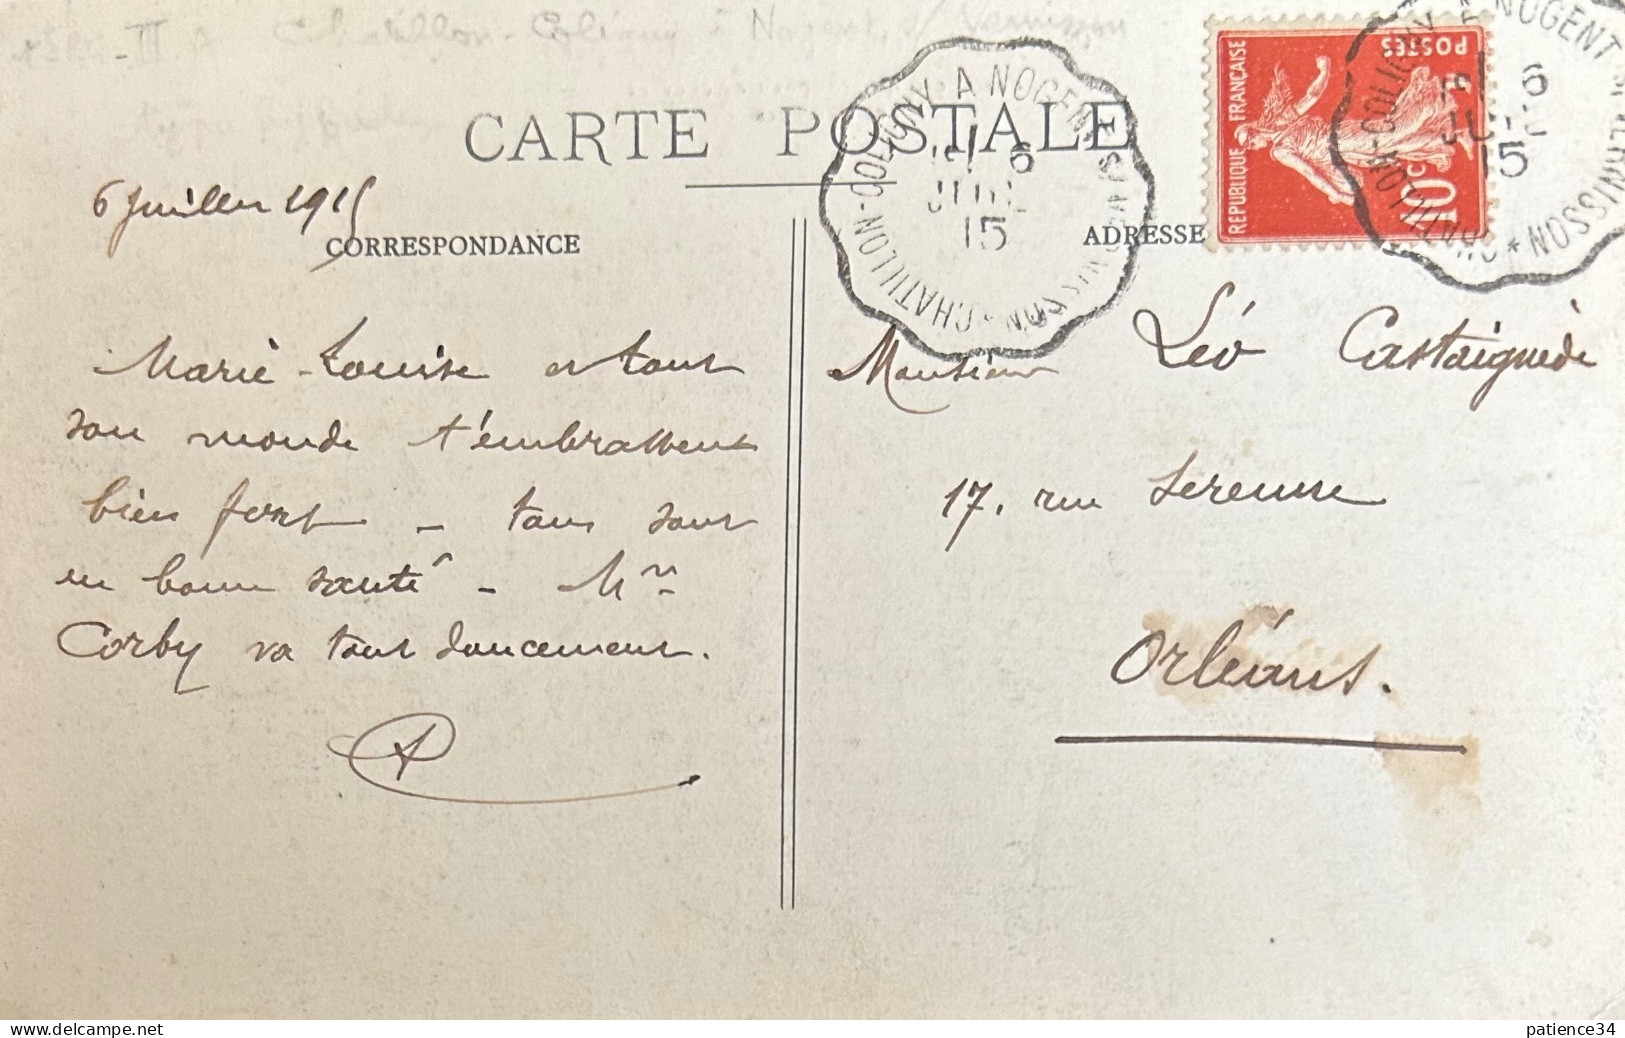 III A Chatillon-Coligny à Nogent s/ Vernisson
CARTE POSTALE
6 Juillet 1915
CORRESPONDANCE
ADRESSE
CHATILLON-COLIGNY A NOGENT S/ VERNISSON *
6
JUIL
15
REPUBLIQUE FRANÇAISE
POSTES
10c
CHATILLON-COLIGNY A NOGENT S/ VERNISSON *
6
15
Marie-Louise et tout
son monde t'embrassent
bien fort – tous sont
en bonne santé – Mr
Corby va tout doucement.
Monsieur Léo Castaignède
17, rue
Orléans.
patience34